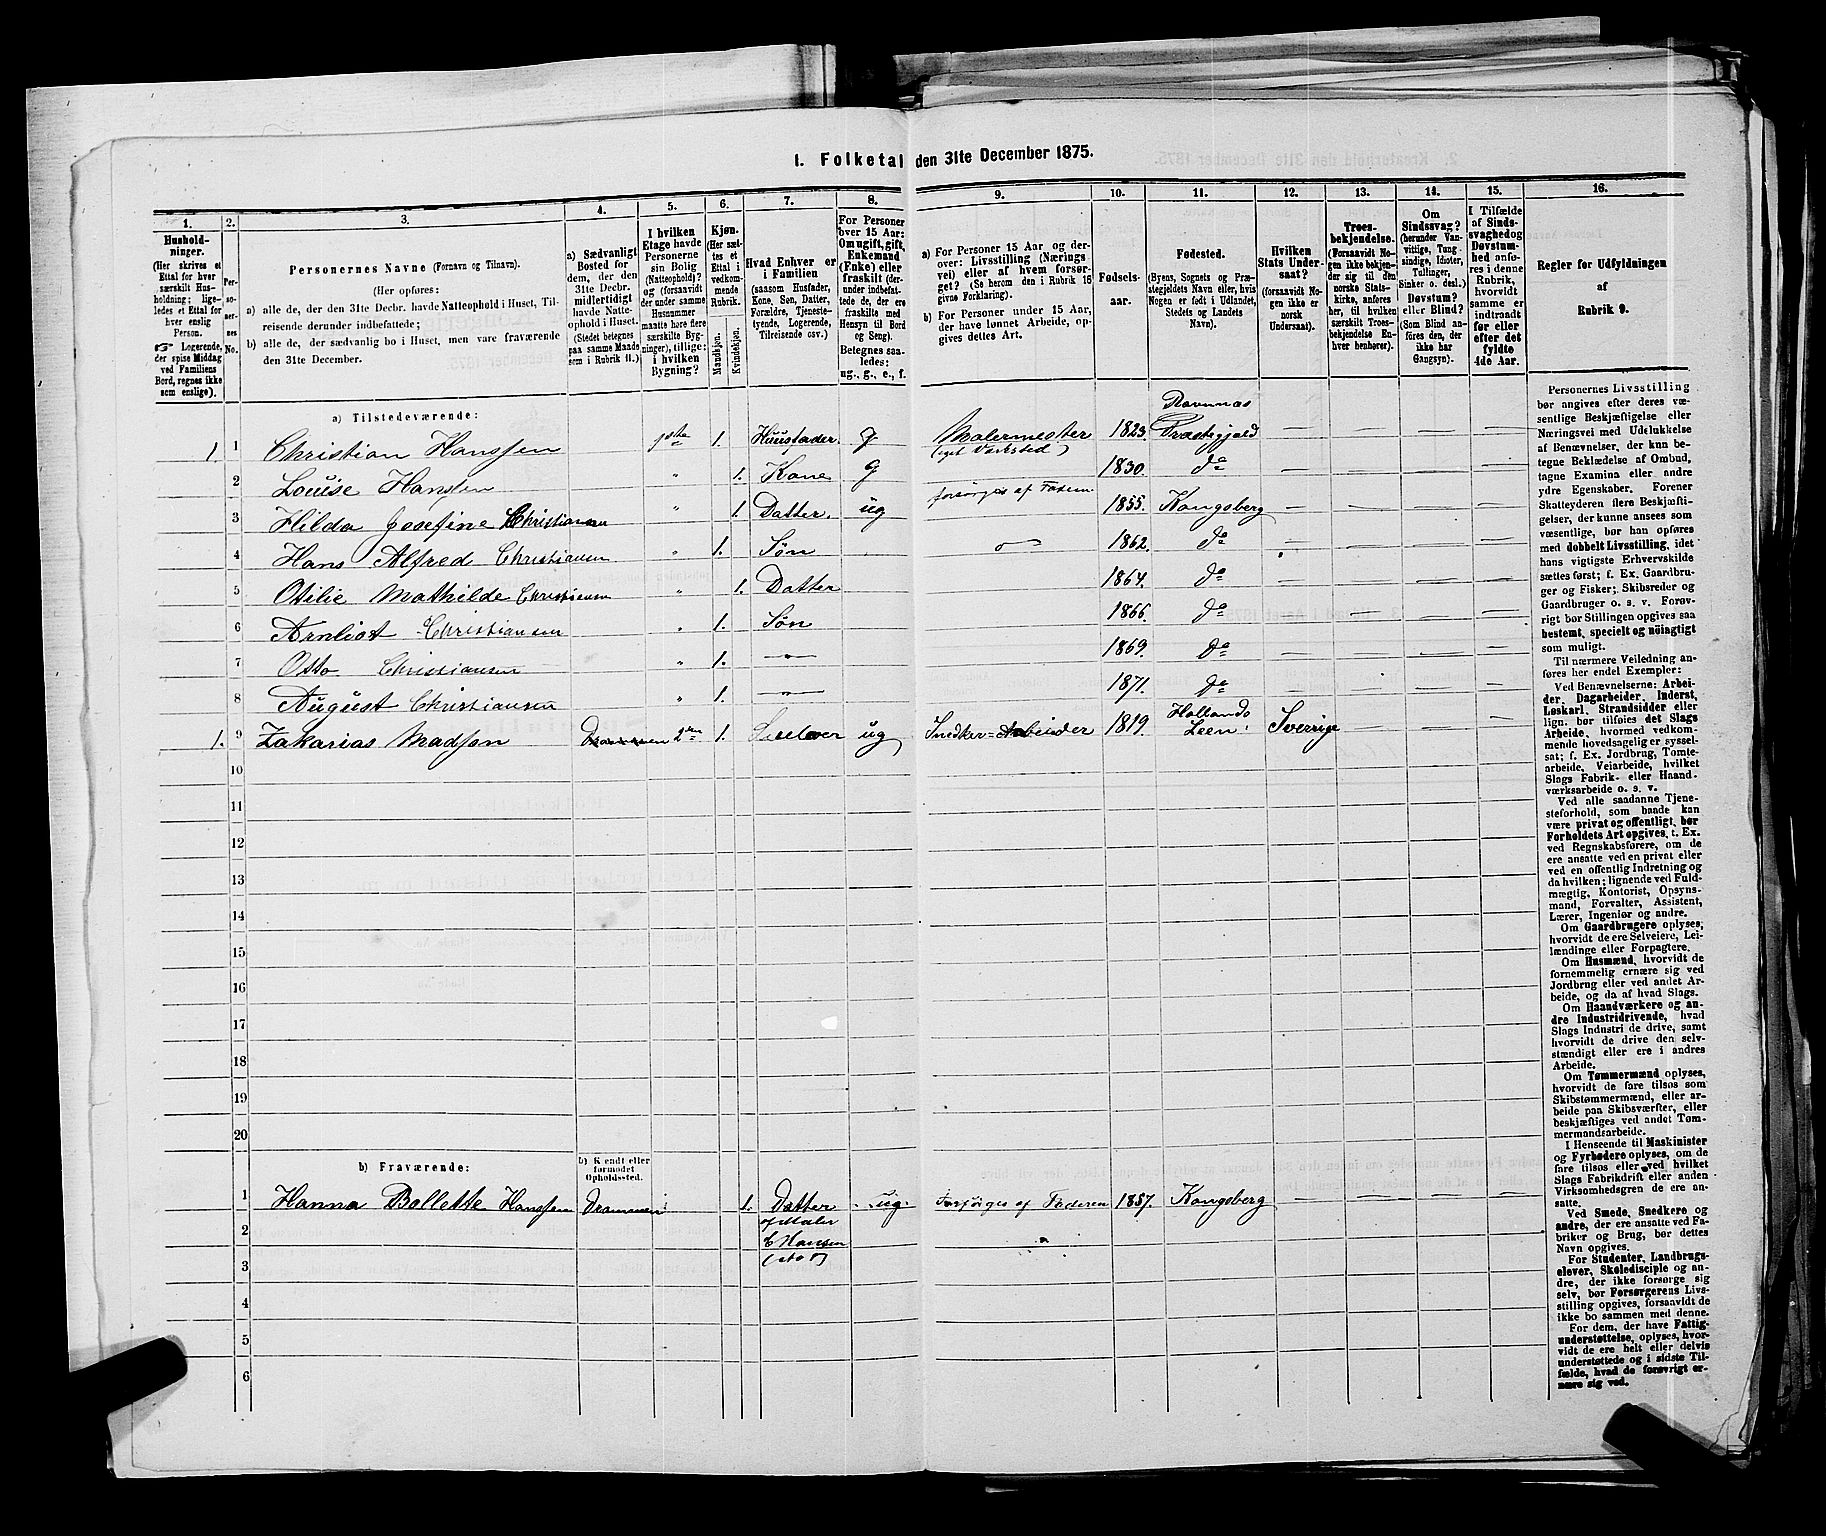 1. Folketal den 31te December 1875.
1.
Husholdninger.
(Her skrives et Ettal for hver særskilt Husholdning; ligeledes et Ettal for hver enslig Person.
☞ Logerende, der spise Middag ved Familiens Bord, regnes ikke som enslige).
2.
Personernes No.
3.
Personernes Navne (Fornavn og Tilnavn).
(Her opføres:
a) alle de, der den 31te Decbr. havde Natteophold i Huset, Tilreisende derunder indbefattede;
b) alle de, der sædvanlig bo i Huset, men vare fraværende den 31te December.
4.
a) Sædvanligt Bosted for dem, der den 31te Decbr. midlertidigt havde Natteophold i Huset. (Stedet betegnes paa samme Maade som i Rubrik 11.)
5.
I hvilken Etage havde Personerne sin Bolig (Natteophold)? og (forsaavidt der under samme Husnummer maatte høre flere særskilte Bygninger), tillige: i hvilken Bygning?
6.
Kjøn.
(Her sættes et Ettal i vedkommende Rubrik.
Mandkjøn.
Kvindekjøn.
7.
Hvad Enhver er i Familien
(saasom Husfader, Kone, Søn, Datter, Forældre, Tjenestetyende, Logerende, Tilreisende osv.)
8.
For Personer over 15 Aar: Om ugift, gift, Enkemand (Enke) eller fraskilt (derunder indbefattede de, der ere fraskilte med Hensyn til Bord og Seng).
Betegnes saaledes: ug., g., e., f.
9.
a) For Personer 15 Aar og derover: Livsstilling (Næringsvei) eller af hvem forsørget? (Se herom den i Rubrik 16 givne Forklaring).
b) For Personer under 15 Aar, der have lønnet Arbeide, opgives dettes Art.
10.
Fødselsaar.
11.
Fødested.
(Byens, Sognets og Præstegjeldets Navn eller, hvis Nogen er født i Udlandet, Stedets og Landets Navn).
12.
Hvilken Stats Undersaat?
(forsaavidt Nogen ikke er norsk Undersaat).
13.
Troesbekjendelse.
(Forsaavidt Nogen ikke bekjender sig til den norske Statskirke, anføres her, til hvilken særskilt Troesbekjendelse Enhver benhører).
14.
Om Sindssvag?
(herunder Vanvittige, Tungsindige, Idioter, Tullinger, Sinker o. desl.)
Døvstum? eller Blind?
(Som Blind anføres den, der ikke har Gangsyn).
15.
I Tilfælde af Sindssvaghed og Døvstumhed anføres i denne Rubrik, hvorvidt samme er indtraadt før eller efter det fyldte 4de Aar.
16.
Regler for Udfyldningen
af
Rubrik 9.
a) Tilstedeværende:
1 1 Christian Hanssen 1ste 1. Huusfader g Malermester (eget Værksted) 1823. Præstegjeld — — — —
2 Louise Hansen " 1. Kone g 1830. do — — — —
3 Hilda Josefine Christiansen " 1. Datter ug forsørges af Faderen 1855. Kongsberg — — — —
4 Hans Alfred Christiansen " 1. Søn 1862. do — — — —
5 Otilie Mathilde Christiansen " 1. Datter 1864. do — — — —
6 Arnliot Christiansen " 1. Søn 1866. do — — — —
7 Otto Christiansen " 1. —"— 1869. do — — — —
8 August Christiansen " 1. —"— 1871. do — — — —
1. 9 Zakarias Madsen Drammen 2den 1. ug Snedker=Arbeider 1819. Hollands Leen. Sverrige — — —
10
11
12
13
14
15
16
17
18
19
20
b) Fraværende:
b) Kjendt eller formodet Opholdssted.
1 Hanna Bollette Hanssen Drammen 1. Datter af Maler C Hansen ug Forsørges af Faderen 1857. Kongsberg — — — —
2
3
4
5
6
Personernes Livsstilling
bør angives efter deres væsentlige Beskjæftigelse eller
Næringsvei med Udelukkelse
af Benævnelser, der kun betegne Beklædelse af Ombud,
tagne Examina eller andre
ydre Egenskaber. Forener
Skatteyderen flere Beskjæftigelser, der kunne ansees som
væsentlige, bør han opføres
med dobbelt Livsstilling, idet
hans vigtigste Erhvervskilde
sættes først; f. Ex. Gaardbruger og Fisker; Skibsreder og
Gaardbruger o. s. v. Forøvrigt bør Stillingen opgives saa
bestemt, specielt og nöiagtigt
som muligt.
Til nærmere Veiledning anføres her endel Exempler:
Ved Benævnelserne: Arbeider, Dagarbeider, Inderst,
Løskarl, Strandsidder eller
lign. bør tilføies det Slags
Arbeide, hvormed vedkommende hovedsagelig er sysselsat; f. Ex. Jordbrug, Tomtearbeide, Veiarbeide, hvilket
Slags Fabrik- eller Haandværksarbeide o. s. v.
Ved alle saadanne Tjenesteforhold, som baade kan
være privat og offentligt, bør
Forholdets Art opgives, t. Ex.
ved Regnskabsførere, om de
ere ansatte ved en privat eller
ved en offentlig Indretning og
da hvilken; lignende ved Fuldmægtig, Kontorist, Opsynsmand, Forvalter, Assistent,
Lærer, Ingeniør og andre.
Om Gaardbrugere oplyses,
hvorvidt de ere Selveiere, Leilændinge eller Forpagtere.
Om Husmænd, hvorvidt de
fornemmelig ernære sig ved
Jordbrug eller ved andet Arbeide, og da af hvad Slags.
Om Haandværkere og andre Industridrivende, hvad
Slags Industri de drive, samt
hvorvidt de drive den selvstændigt eller ere i andres
Arbeide.
Om Tømmermænd oplyses,
hvorvidt de fare tilsøs som
Skibstømmermænd, eller arbeide paa Skibsværfter, eller
beskjæftiges ved andet Tømmermandsarbeide.
I Henseende til Maskinister
og Fyrbødere oplyses, om de
fare tilsøs eller ved hvilket
Slags Fabrikdrift eller anden
Virksomhedsgren de ere ansatte.
Ved Smede, Snedkere og
andre, der ere ansatte ved Fabriker og Brug, bør dettes
Navn opgives.
For Studenter, Landbrugselever, Skoledisciple og andre, der ikke forsørge sig
selv, bør Forsørgerens Livsstilling opgives, forsaavidt de
ikke bo sammen med denne.
For dem, der have Fattigunderstøttelse, oplyses, hvorvidt de ere helt eller delvis
understøttede og i sidste Tilfælde, hvad de forøvrigt ernære sig ved.